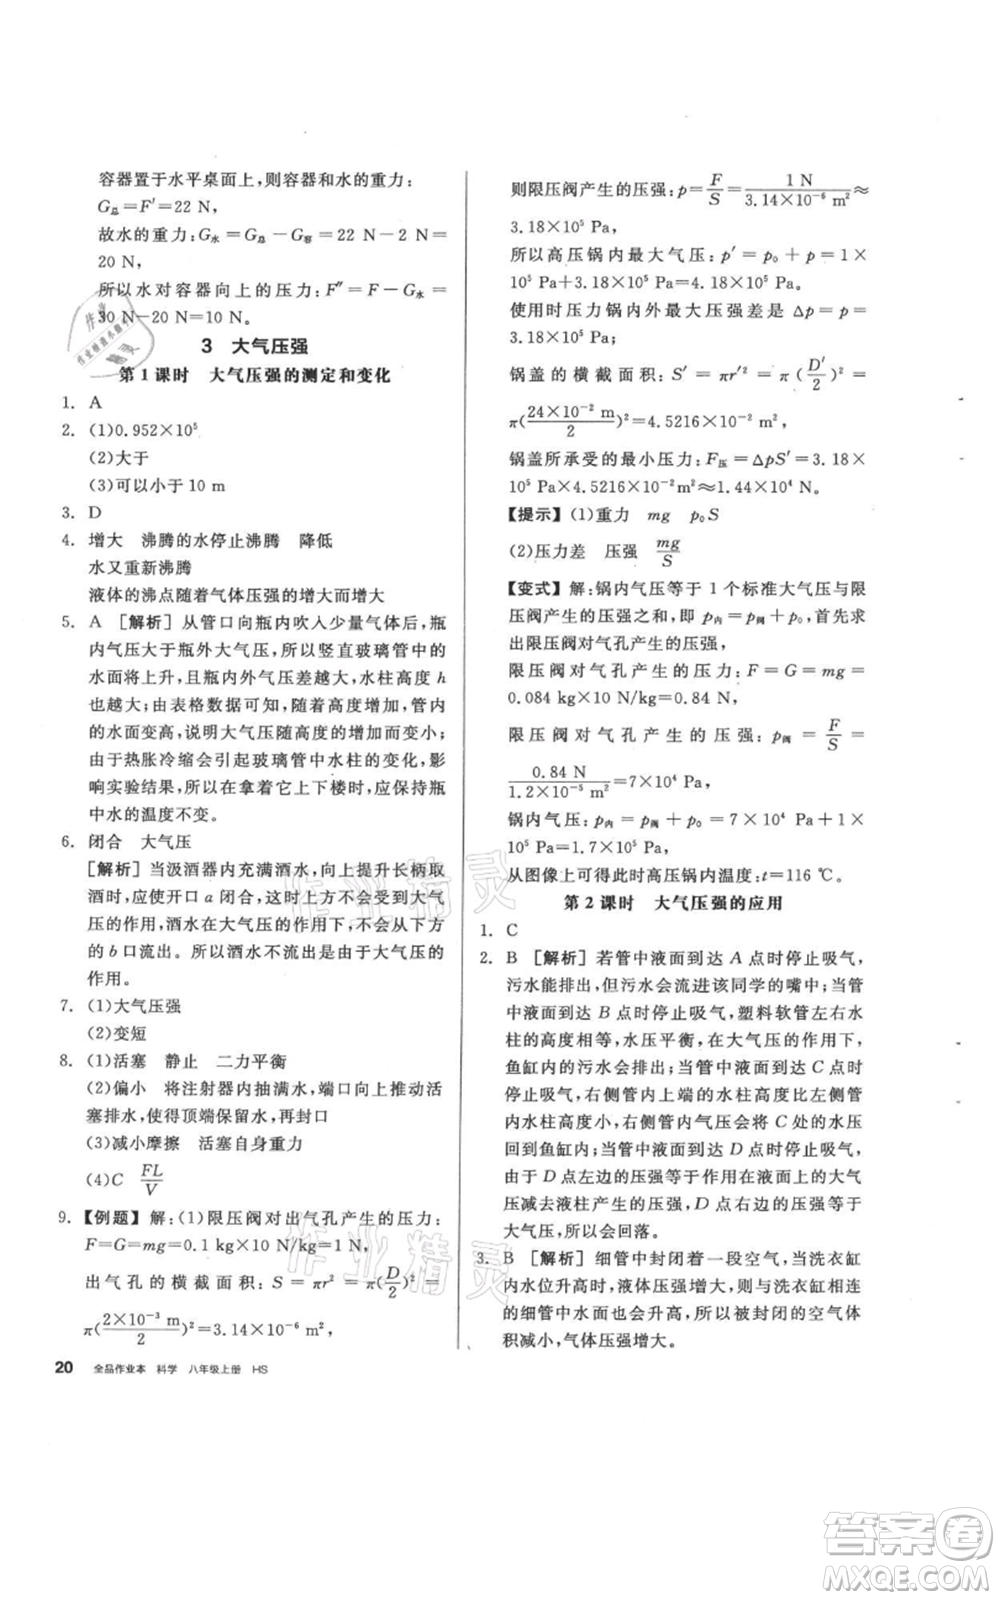 容器置于水平桌面上,则容器和水的重力:
G总=F′=22 N,
故水的重力:G水=G总-G容=22 N-2 N=
20 N,
所以水对容器向上的压力:F″=F-G水=
30 N-20 N=10 N。
3 大气压强
第1课时 大气压强的测定和变化
1. A
2. (1)0.952×10⁵
(2)大于
(3)可以小于10 m
3. D
4. 增大 沸腾的水停止沸腾 降低
水又重新沸腾
液体的沸点随着气体压强的增大而增大
5. A [解析] 从管口向瓶内吹入少量气体后,瓶
内气压大于瓶外大气压,所以竖直玻璃管中的
水面将上升,且瓶内外气压差越大,水柱高度 h
也越大;由表格数据可知,随着高度增加,管内
的水面变高,说明大气压随高度的增加而变小;
由于热胀冷缩会引起玻璃管中水柱的变化,影
响实验结果,所以在拿着它上下楼时,应保持瓶
中水的温度不变。
6. 闭合 大气压
[解析] 当汲酒器内充满酒水,向上提升长柄取
酒时,应使开口 a 闭合,这时上方不受大气压的
作用,酒水在大气压的作用下,不会从下方
的 b 口流出。所以酒水不流出是由于大气压的
作用。
7. (1)大气压强
(2)变短
8. (1)活塞 静止 二力平衡
(2)偏小 将注射器内抽满水,端口向上推动活
塞排水,使得顶端保留水,再封口
(3)减小摩擦 活塞自身重力
(4)C FL/V
9. 【例题】解:(1)限压阀对出气孔产生的压力:
F=G=mg=0.1 kg×10 N/kg=1 N,
出气孔的横截面积:S=πr²=π(D/2)²=
π(2×10⁻³ m/2)²=3.14×10⁻⁶ m²,
20 全品作业本 科学 八年级上册 HS
则限压阀产生的压强:p=F/S=1 N/3.14×10⁻⁶ m²≈
3.18×10⁵ Pa,
所以高压锅内最大气压:p′=p₀+p=1×
10⁵ Pa+3.18×10⁵ Pa=4.18×10⁵ Pa。
(2)使用时压力锅内外最大压强差是
3.18×10⁵ Pa;
锅盖的横截面积:S′=πr′²=π(D′/2)²=
π(24×10⁻² m/2)²=4.5216×10⁻² m²,
锅盖所承受的最小压力:F压=ΔpS′=3.18×
10⁵ Pa×4.5216×10⁻² m²≈1.44×10⁴ N。
【提示】(1)重力 mg p₀S
(2)压力差 压强 mg/S
【变式】解:锅内气压等于1个标准大气压与限
压阀产生的压强之和,即 p内=p阀+p₀,首先求
出限压阀对气孔产生的压强;
限压阀对气孔产生的压力:F=G=mg=
0.084 kg×10 N/kg=0.84 N,
限压阀对气孔产生的压强:p阀=F/S=
0.84 N/1.2×10⁻⁵ m²=7×10⁴ Pa,
锅内气压:p内=p阀+p₀=7×10⁴ Pa+1×
10⁵ Pa=1.7×10⁵ Pa。
从图像上可得出此时高压锅内温度:t=116 ℃。
第2课时 大气压强的应用
1. C
2. B [解析] 若管中液面到达 A 点时停止吸气,
污水能排出,但污水会流进该同学的嘴中;当管
中液面到达 B 点时停止吸气,塑料软管左右水
柱的高度相等,水压平衡,在大气压的作用下,
鱼缸内的污水会排出;当管中液面到达 C 点时
停止吸气,右侧管内上端的水柱高度比左端的
水柱高度大,右侧管内气压会将 C 处的水压
回到鱼缸内;当管中液面到达 D 点停止吸气,
由于 D 点左边的压强等于作用在液面上的大气
压减去液柱产生的压强,D 点右边的压强等于
大气压,所以会回落。
3. B [解析] 细管中封闭着一段空气,当洗衣缸
内水位升高时,液体压强增大,则与洗衣缸相连
的细管中水面也会升高,所以被封闭的空气体
积减小,气体压强增大。
作业精灵
作业精灵
答案卷
MXQE.COM